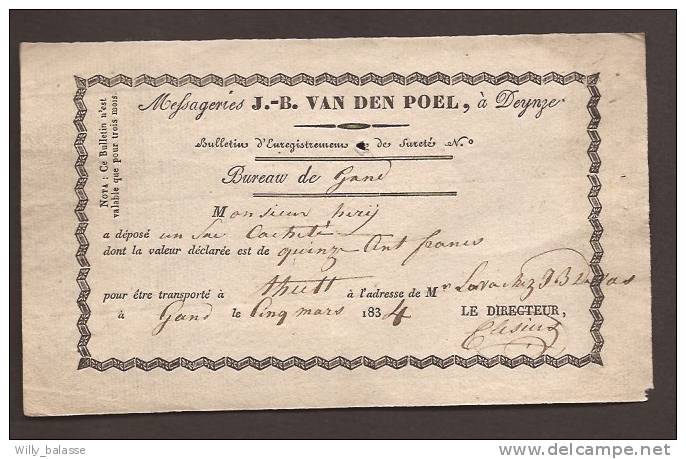 Messageries J.-B. VAN DEN POEL, à Deynze
Bulletin d'Enregistrement & de Sureté N.º
Bureau de Gand
NOTA : Ce Bulletin n'est
valable que pour trois mois.
Monsieur
a déposé un Sac Cacheté
dont la valeur déclarée est de quinze Cent francs
pour être transporté à thielt à l'adresse de Mr
à Gand le Cinq mars 1834 LE DIRECTEUR,
Willy_balasse
delcampe.net